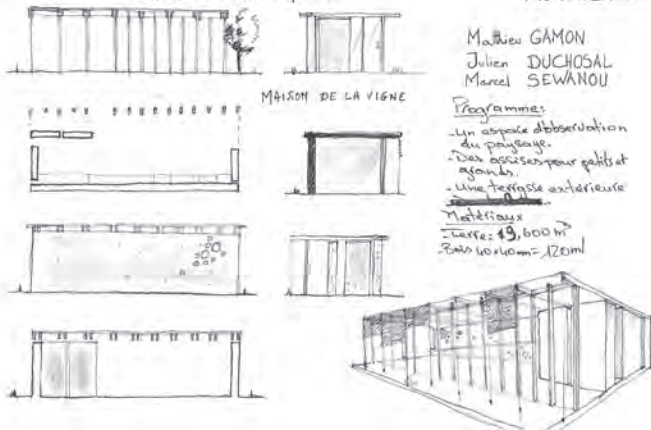 Mathieu GAMON
Julien DUCHOSAL
Marcel SEWANOU
MAISON DE LA VIGNE
Programme:
- Un espace d'observation
du paysage.
- Des assises pour petits et
grands.
- Une terrasse extérieure
Matériaux
- Terre: 19,600 m³
- Bois 40x40mm = 120ml